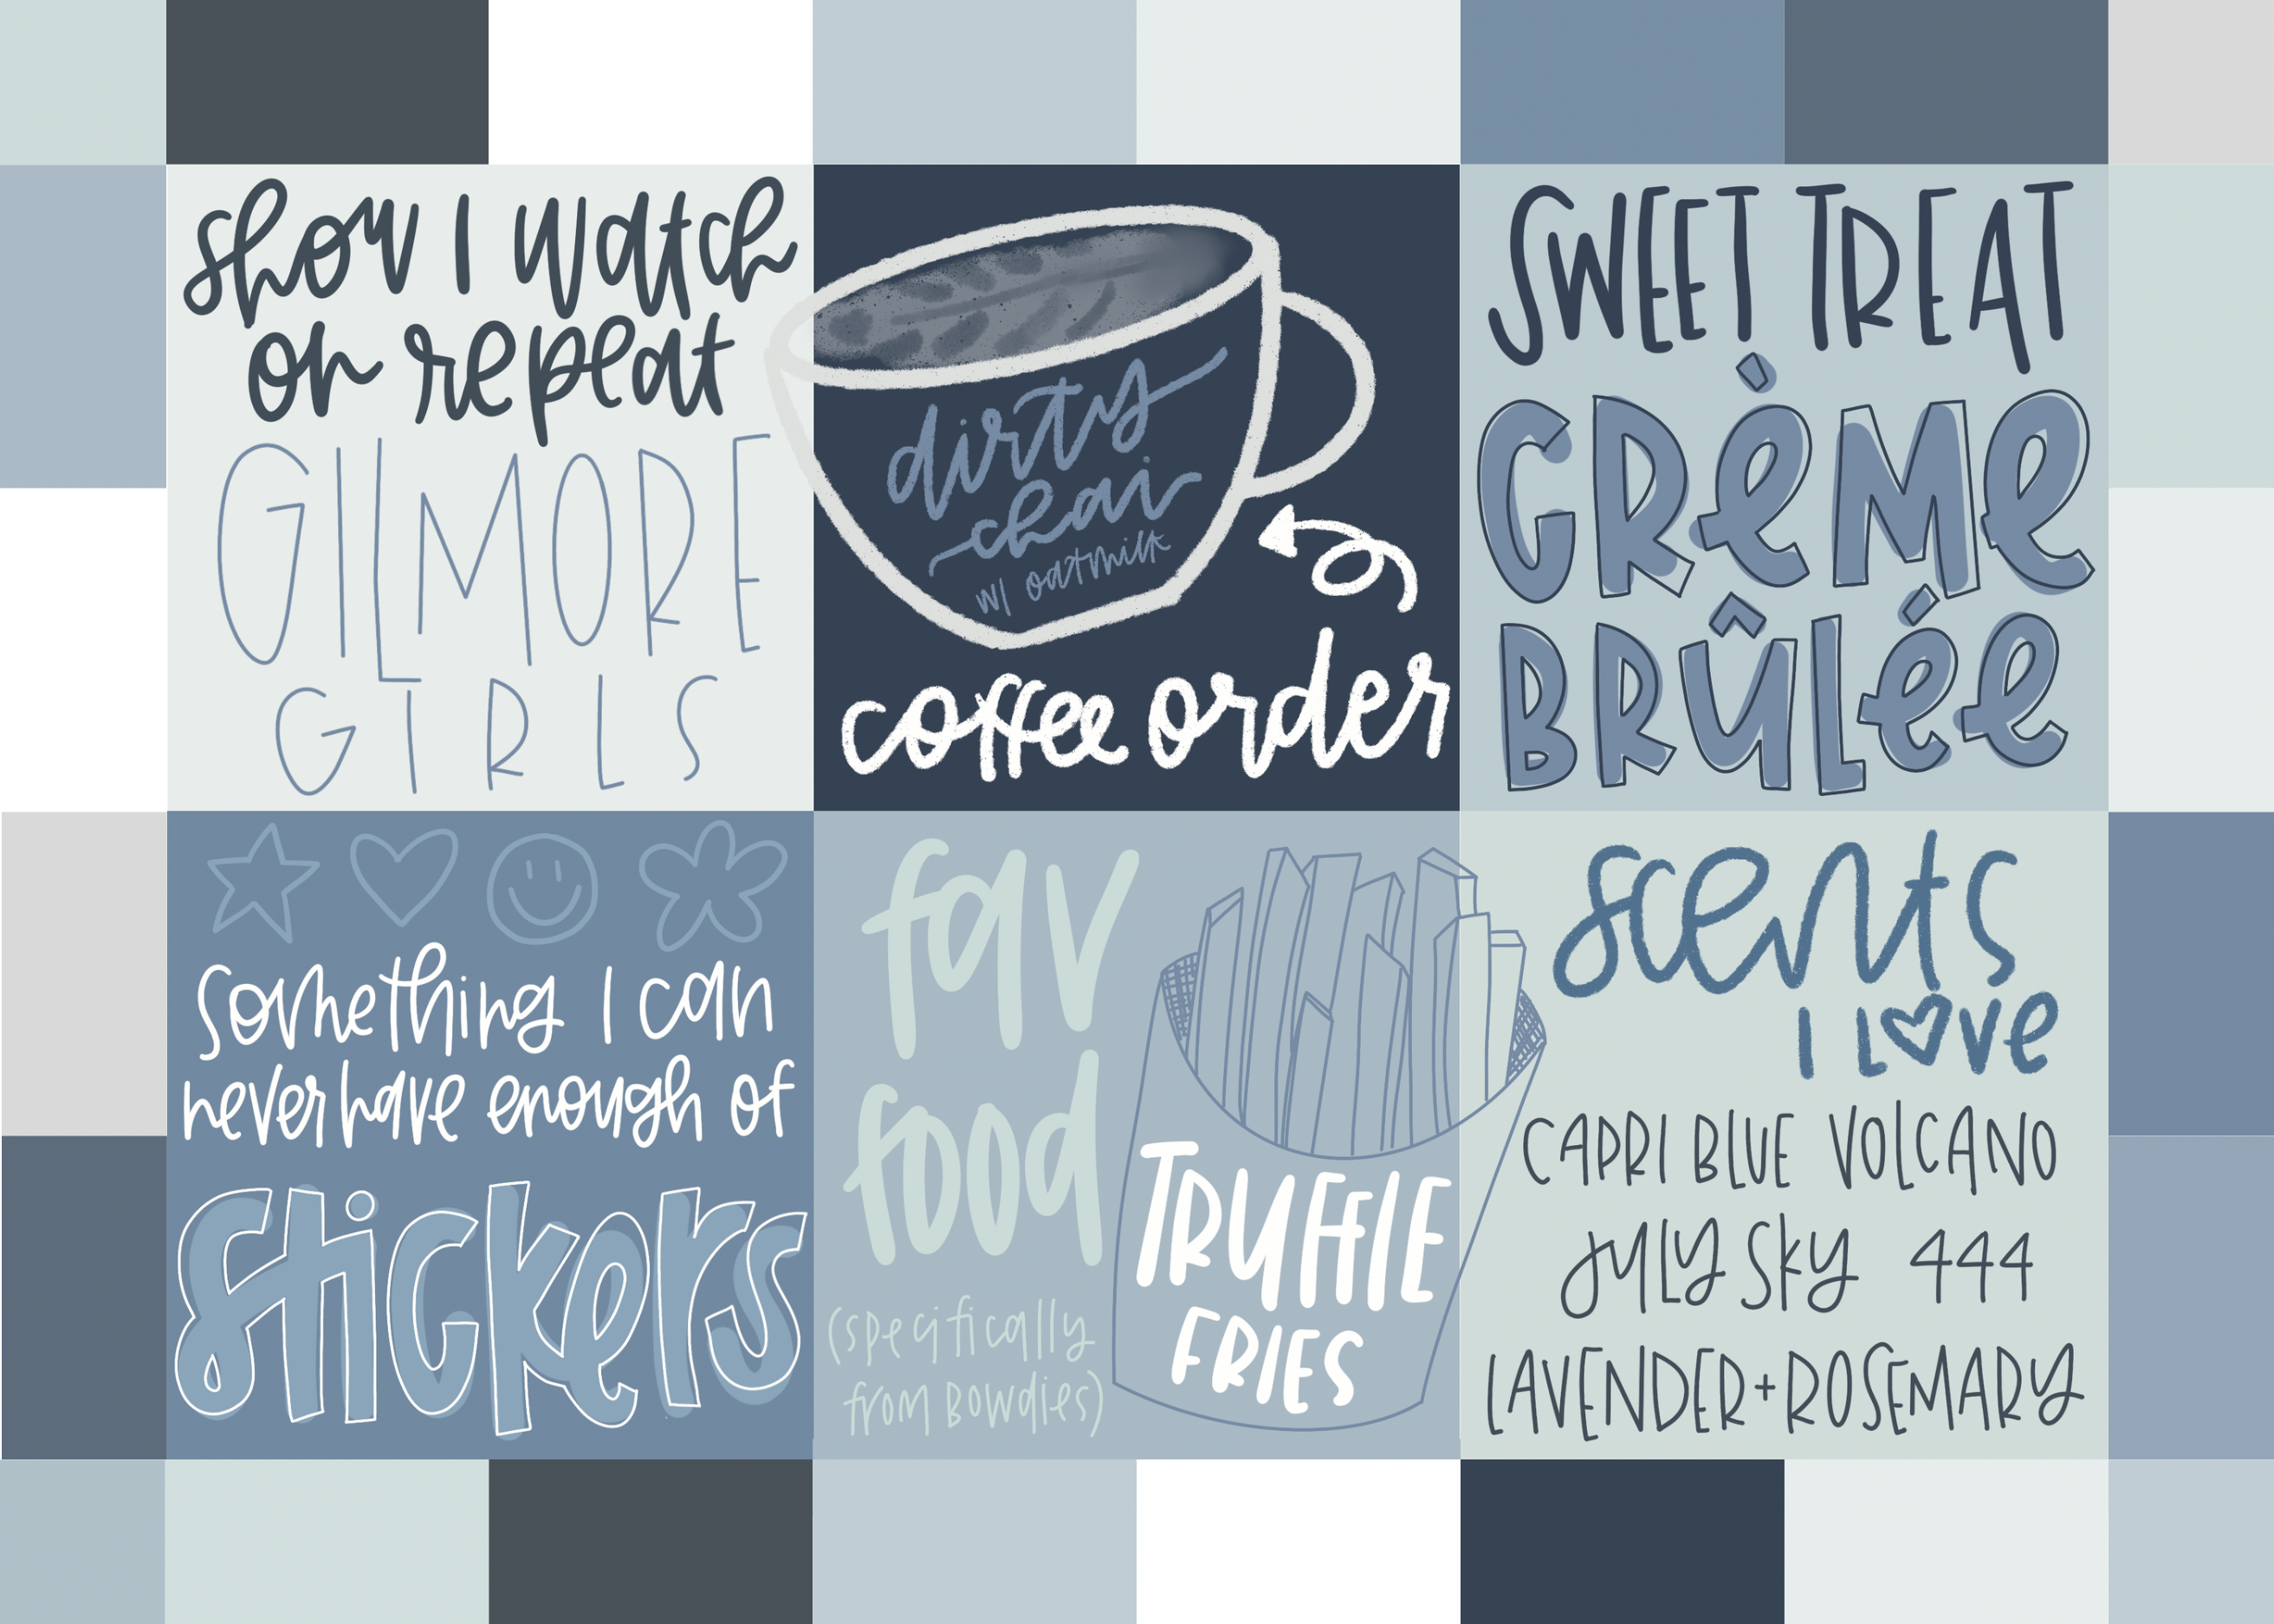 show I watch
on repeat
GILMORE
GIRLS
dirty
chai
w/ oatmilk
coffee order
SWEET TREAT
CRèMe
BRûLée
something I can
never have enough of
stickers
fav
food
(specifically
from Bowdies)
TRUFFLE
FRIES
scents
I LOVe
CAPRI BLUE VOLCANO
JULY SKY 444
LAVENDER + ROSEMARY